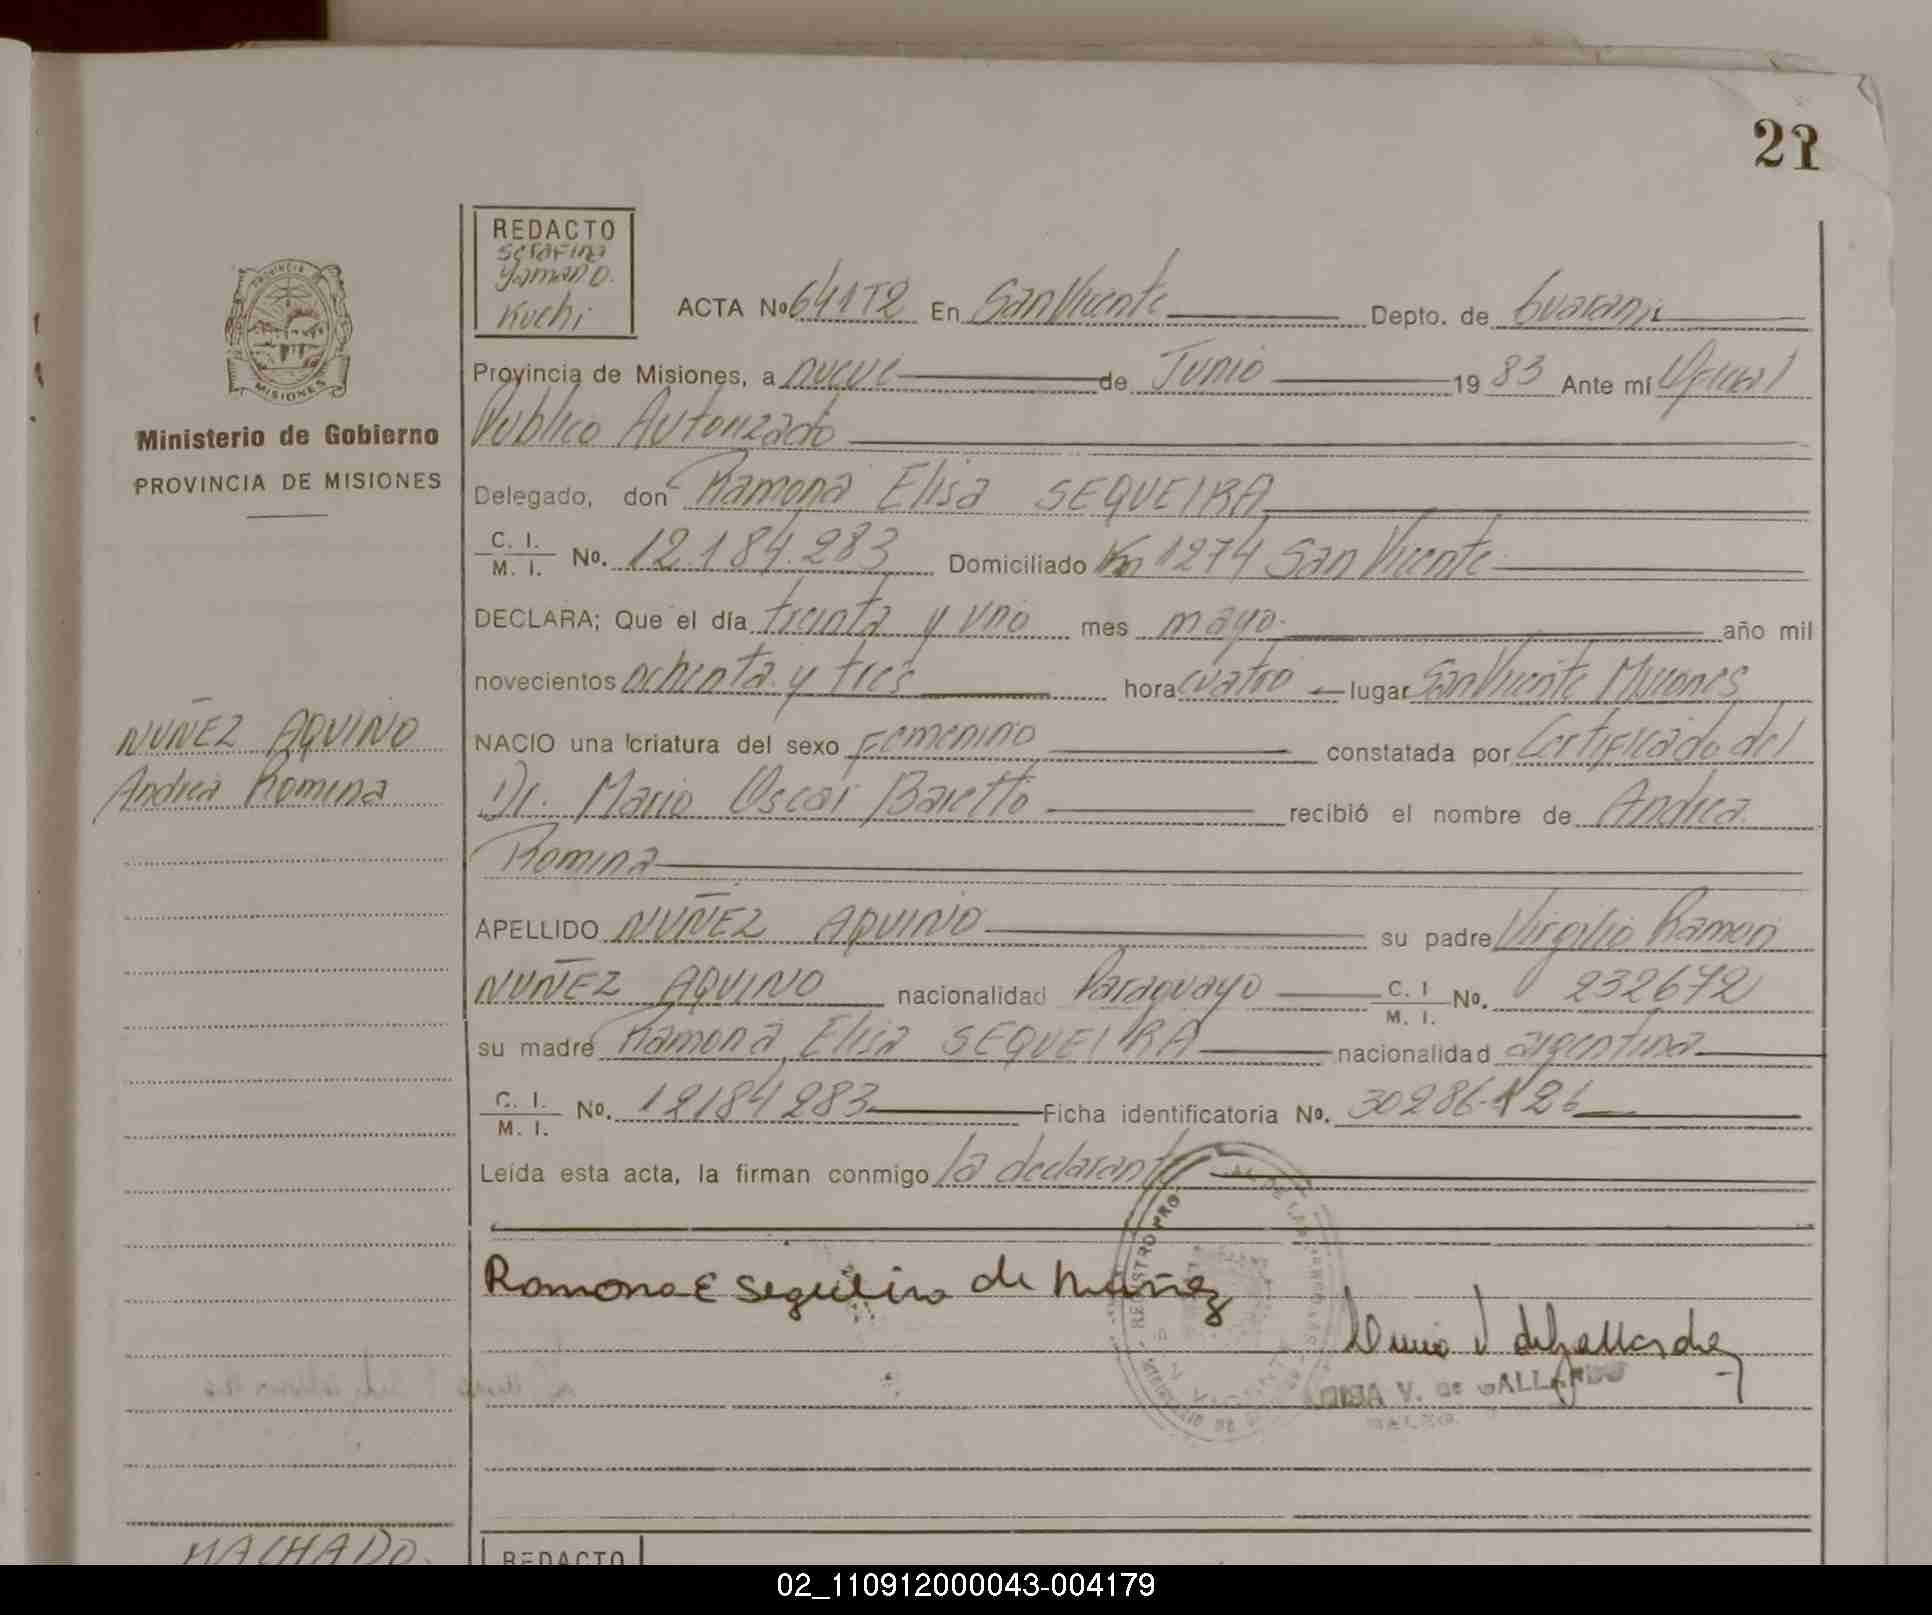 21
REDACTO
Serafina
Yaman D.
Kuchi
PROVINCIA
MISIONES
Ministerio de Gobierno
PROVINCIA DE MISIONES
ACTA Nº 641T2 En San Vicente Depto. de Guarani
Provincia de Misiones, a nueve de Junio 19 83 Ante mí Oficial
Publico Autorizado
Delegado, don Ramona Elisa SEQUEIRA
C. I.
M. I. Nº. 12.184.283 Domiciliado Km 1274 San Vicente
DECLARA; Que el día treinta y uno mes mayo año mil
novecientos ochenta y tres hora cuatro lugar San Vicente Misiones
NACIO una criatura del sexo Femenino constatada por Certificado del
Dr. Mario Oscar Baretto recibió el nombre de Andrea
Romina
APELLIDO NUÑEZ AQUINO su padre Virgilio Ramon
NUÑEZ AQUINO nacionalidad Paraguayo C. I
M. I. Nº. 232672
su madre Ramona Elisa SEQUEIRA nacionalidad argentina
C. I.
M. I. Nº. 12184283 Ficha identificatoria Nº. 30286126
Leída esta acta, la firman conmigo la declarante
NUÑEZ AQUINO
Andrea Romina
Ramona E Sequeira de Nuñez
V. de GALLARDO
MACHADO
REDACTO
02_110912000043-004179